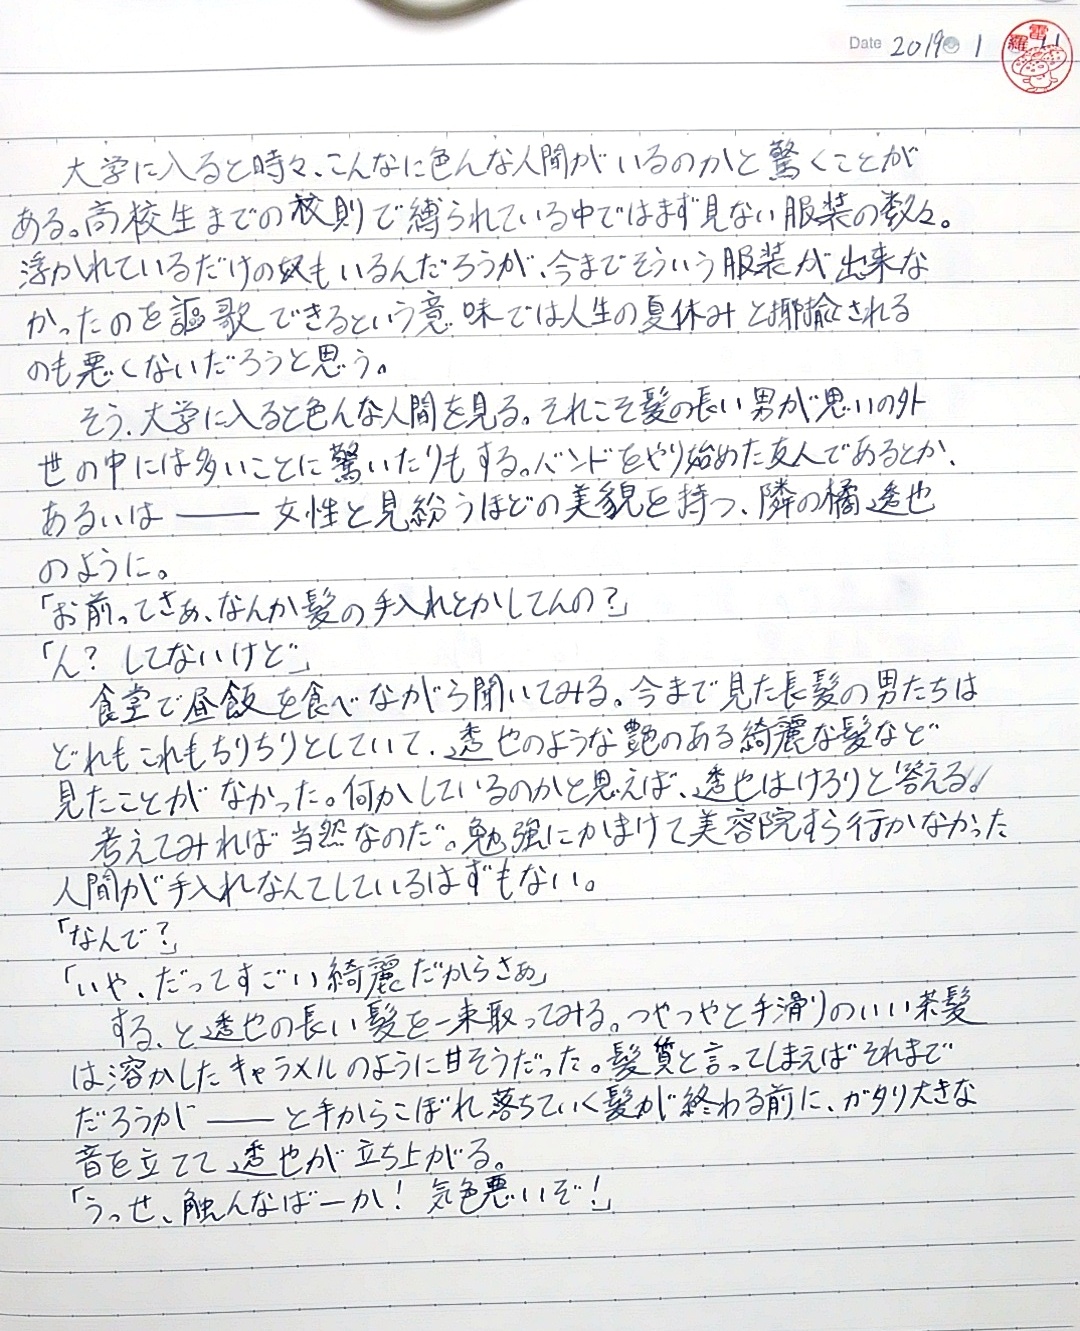 Date 2019 1 11
雷羅
大学に入ると時々、こんなに色んな人間がいるのかと驚くことが
ある。高校生までの校則で縛られている中ではまず見ない服装の数々。
浮かれているだけの奴もいるんだろうが、今までそういう服装が出来な
かったのを謳歌できるという意味では人生の夏休みと揶揄される
のも悪くないだろうと思う。
そう、大学に入ると色んな人間を見る。それこそ髪の長い男が思いの外
世の中には多いことに驚いたりもする。バンドをやり始めた友人であるとか、
あるいは――女性と見紛うほどの美貌を持つ、隣の橘透也
のように。
「お前ってさぁ、なんか髪の手入れとかしてんの?」
「ん? してないけど」
食堂で昼飯を食べながら聞いてみる。今まで見た長髪の男たちは
どれもこれもちりちりとしていて、透也のような艶のある綺麗な髪など
見たことがなかった。何かしているのかと思えば、透也はけろりと答える。
考えてみれば当然なのだ。勉強にかまけて美容院すら行かなかった
人間が手入れなんてしているはずもない。
「なんで?」
「いや、だってすごい綺麗だからさぁ」
する、と透也の長い髪を一束取ってみる。つやつやと手滑りのいい茶髪
は溶かしたキャラメルのように甘そうだった。髪質と言ってしまえばそれまで
だろうが――と手からこぼれ落ちていく髪が終わる前に、ガタリ大きな
音を立てて透也が立ち上がる。
「うっせ、触んなばーか! 気色悪いぞ!」